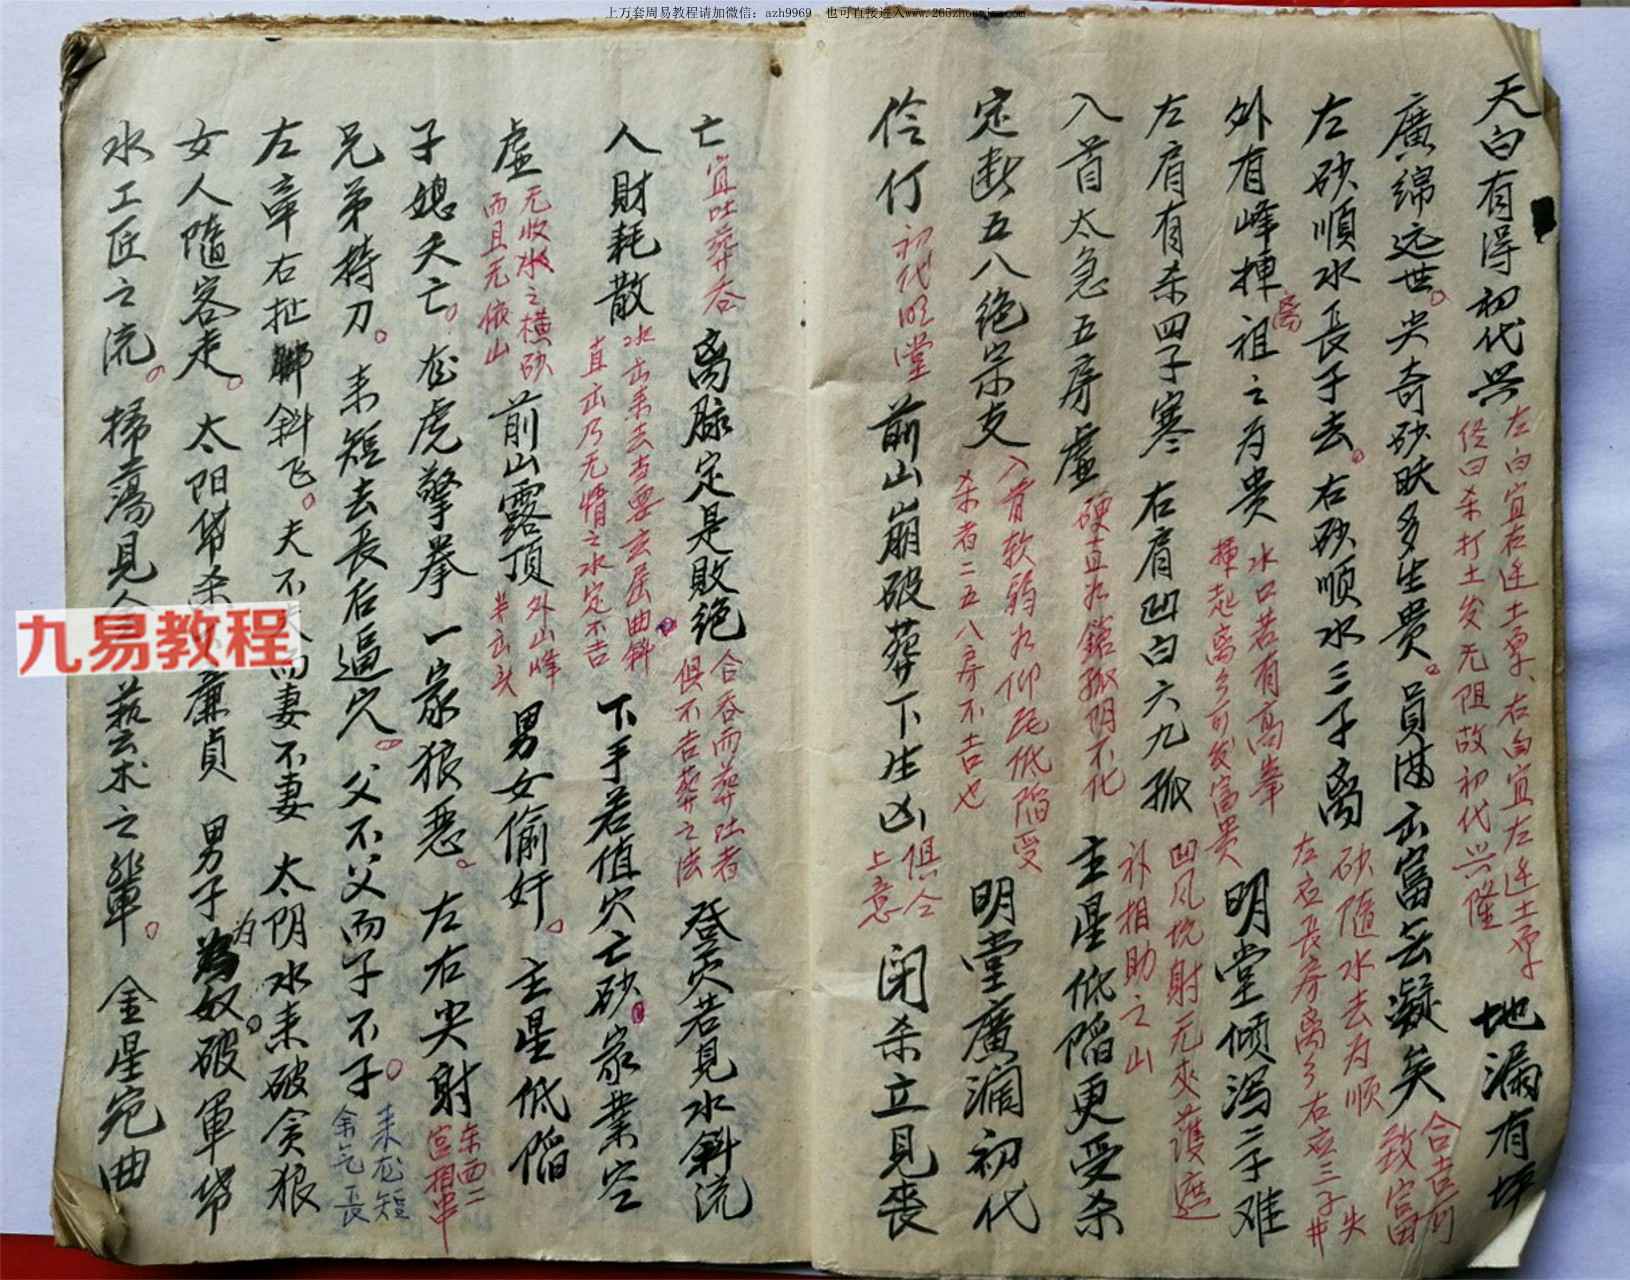 上万套周易教程请加微信：azh9969 也可直接进入www.265zhouyi.com
天白有得初代兴
左白宜右迁土厚、右白宜左迁土厚
经曰杀打土发无阻故初代兴隆
地漏有
廣綿远世。尖奇砂昳多生贵。員滿出富去凝矣
合吉有
致富
左砂順水長子去。右砂顺水三子离
砂随水去为顺
左应長房离乡右应三子
外有峰揷祖之为贵
离
水口若有高峯
揷起离乡可发富贵
明堂倾泻二子难
左肩有杀四子寒 右肩凹白六九孤
凹风坑射无夾護遮
补相助之山
入首太急五房虚
硬直如鎗孤阴不化
主星低陷更受杀
定断五八绝宗支
入首软弱如仰瓦低陷受
杀者二五八房不吉也
明堂廣濶初代
伶仃
初代明堂
前山崩破葬下生凶
俱仝
上意
闭杀立見丧
亡
宜吐葬吞
离脉定是敗绝
合吞而葬吐者
俱不吉葬之法
登穴若見水斜流
人財耗散
水出来去吉要玄屈曲斜
直出乃无情之水定不吉
下手若值穴亡砂。家業空
虛
无收水之横砂
而且无依山
前山露顶
外山峰
半出头
男女偷奸。主星低陷
子媳夭亡。龙虎擎拳一家狼恶。左右尖射
东西二
宫相串
兄弟持刀。来短去長后逼穴。父不父而子不子。
来龙短
余气長
左牵右扯斜飞。夫不夫而妻不妻 太阴水来破贪狼
女人隨客走。太阳帶杀廉貞 男子为奴。破軍帶
水工匠之流。掃蕩見藝术之輩。金星宛曲
九易教程